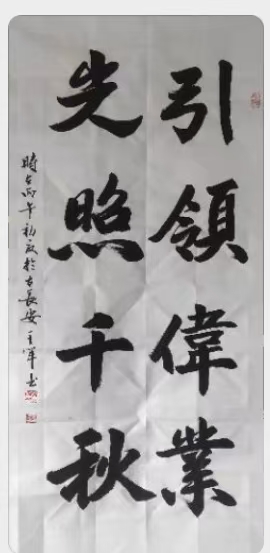 引領偉業
光照千秋
時在丙午初夏於古長安王軍书